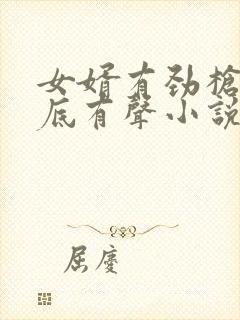 女婿有劲槍
底有聲小説
屈慶